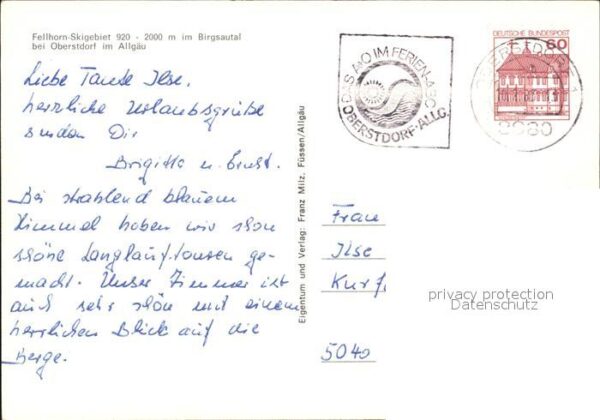 Fellhorn-Skigebiet 920 - 2000 m im Birgsautal
bei Oberstdorf im Allgäu
Liebe Tante Ilse,
herzliche Urlaubsgrüße
senden Dir
Brigitte u. Ernst.
Bei strahlend blauem
Himmel haben wir schon
schöne Langlauftouren ge-
macht. Unser Zimmer ist
auch sehr schön mit einem
herrlichen Blick auf die
Berge.
Eigentum und Verlag: Franz Milz, Füssen/Allgäu
DAS A+O IM FERIEN-ABC
OBERSTDORF·ALLG.
OBERSTDORF 1
8980
DEUTSCHE BUNDESPOST
60
Frau
Ilse
Kurf
5040
privacy protection
Datenschutz